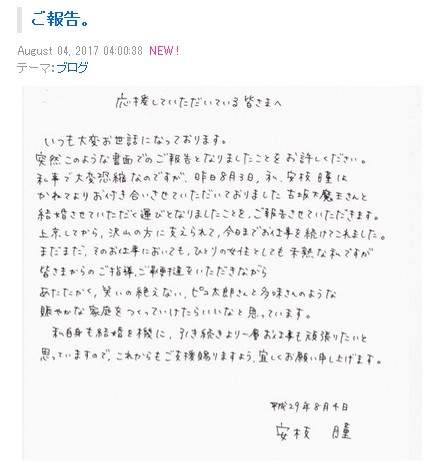 ご報告。
August 04, 2017 04:00:38 NEW !
テーマ:ブログ
応援していただいている皆さまへ
いつも大変お世話になっております。
突然このような書面でのご報告となりましたことをお許しください。
私事で大変恐縮なのですが、昨日8月3日、私、安枝瞳は
かねてよりお付き合いさせていただいておりました古坂大魔王さんと
結婚させていただく運びとなりましたことを、ご報告させていただきます。
上京してから、沢山の方に支えられて、今日までお仕事を続けてこれました。
まだまだ、そのお仕事においても、ひとりの女性としても未熟な私ですが
皆さまからのご指導、ご鞭撻をいただきながら
あたたかく、笑いの絶えない、ピコ太郎さんと多味さんのような
賑やかな家庭をつくっていけたらいいなと思っています。
私自身も結婚を機に、引き続きより一層お仕事も頑張りたいと
思っていますので、これからもご支援賜りますよう、宜しくお願い申し上げます。
平成29年8月4日
安枝 瞳